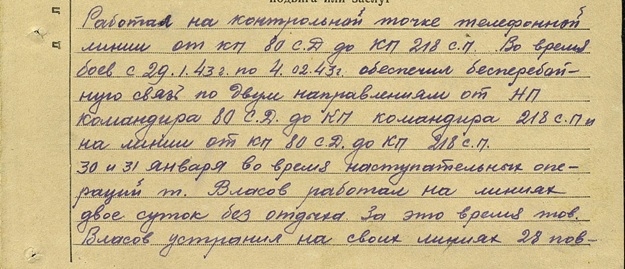 подвига или заслуг
Работал на контрольной точке телефонной
линии от КП 80 С.Д до КП 218 с.п. Во время
боев с 29.1.43г. по 4.02.43г. обеспечил бесперебой-
ную связь по двум направлениям от НП
командира 80 С.Д. до КП командира 218 с.п и
на линии от КП 80 с.Д. до КП 218 с.п.
30 и 31 января во время наступательных опе-
раций т. Власов работал на линиях
двое суток без отдыха. За это время тов.
Власов устранил на своих линиях 28 пов-